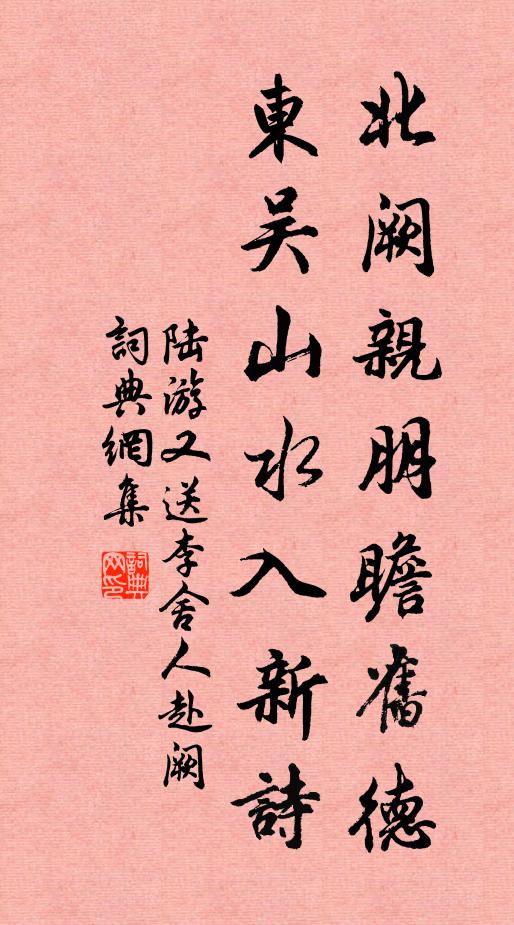 北阙親朋瞻舊德
東吴山水入新詩
陆游又送李舍人赴阙
詞典網集
詞典网印